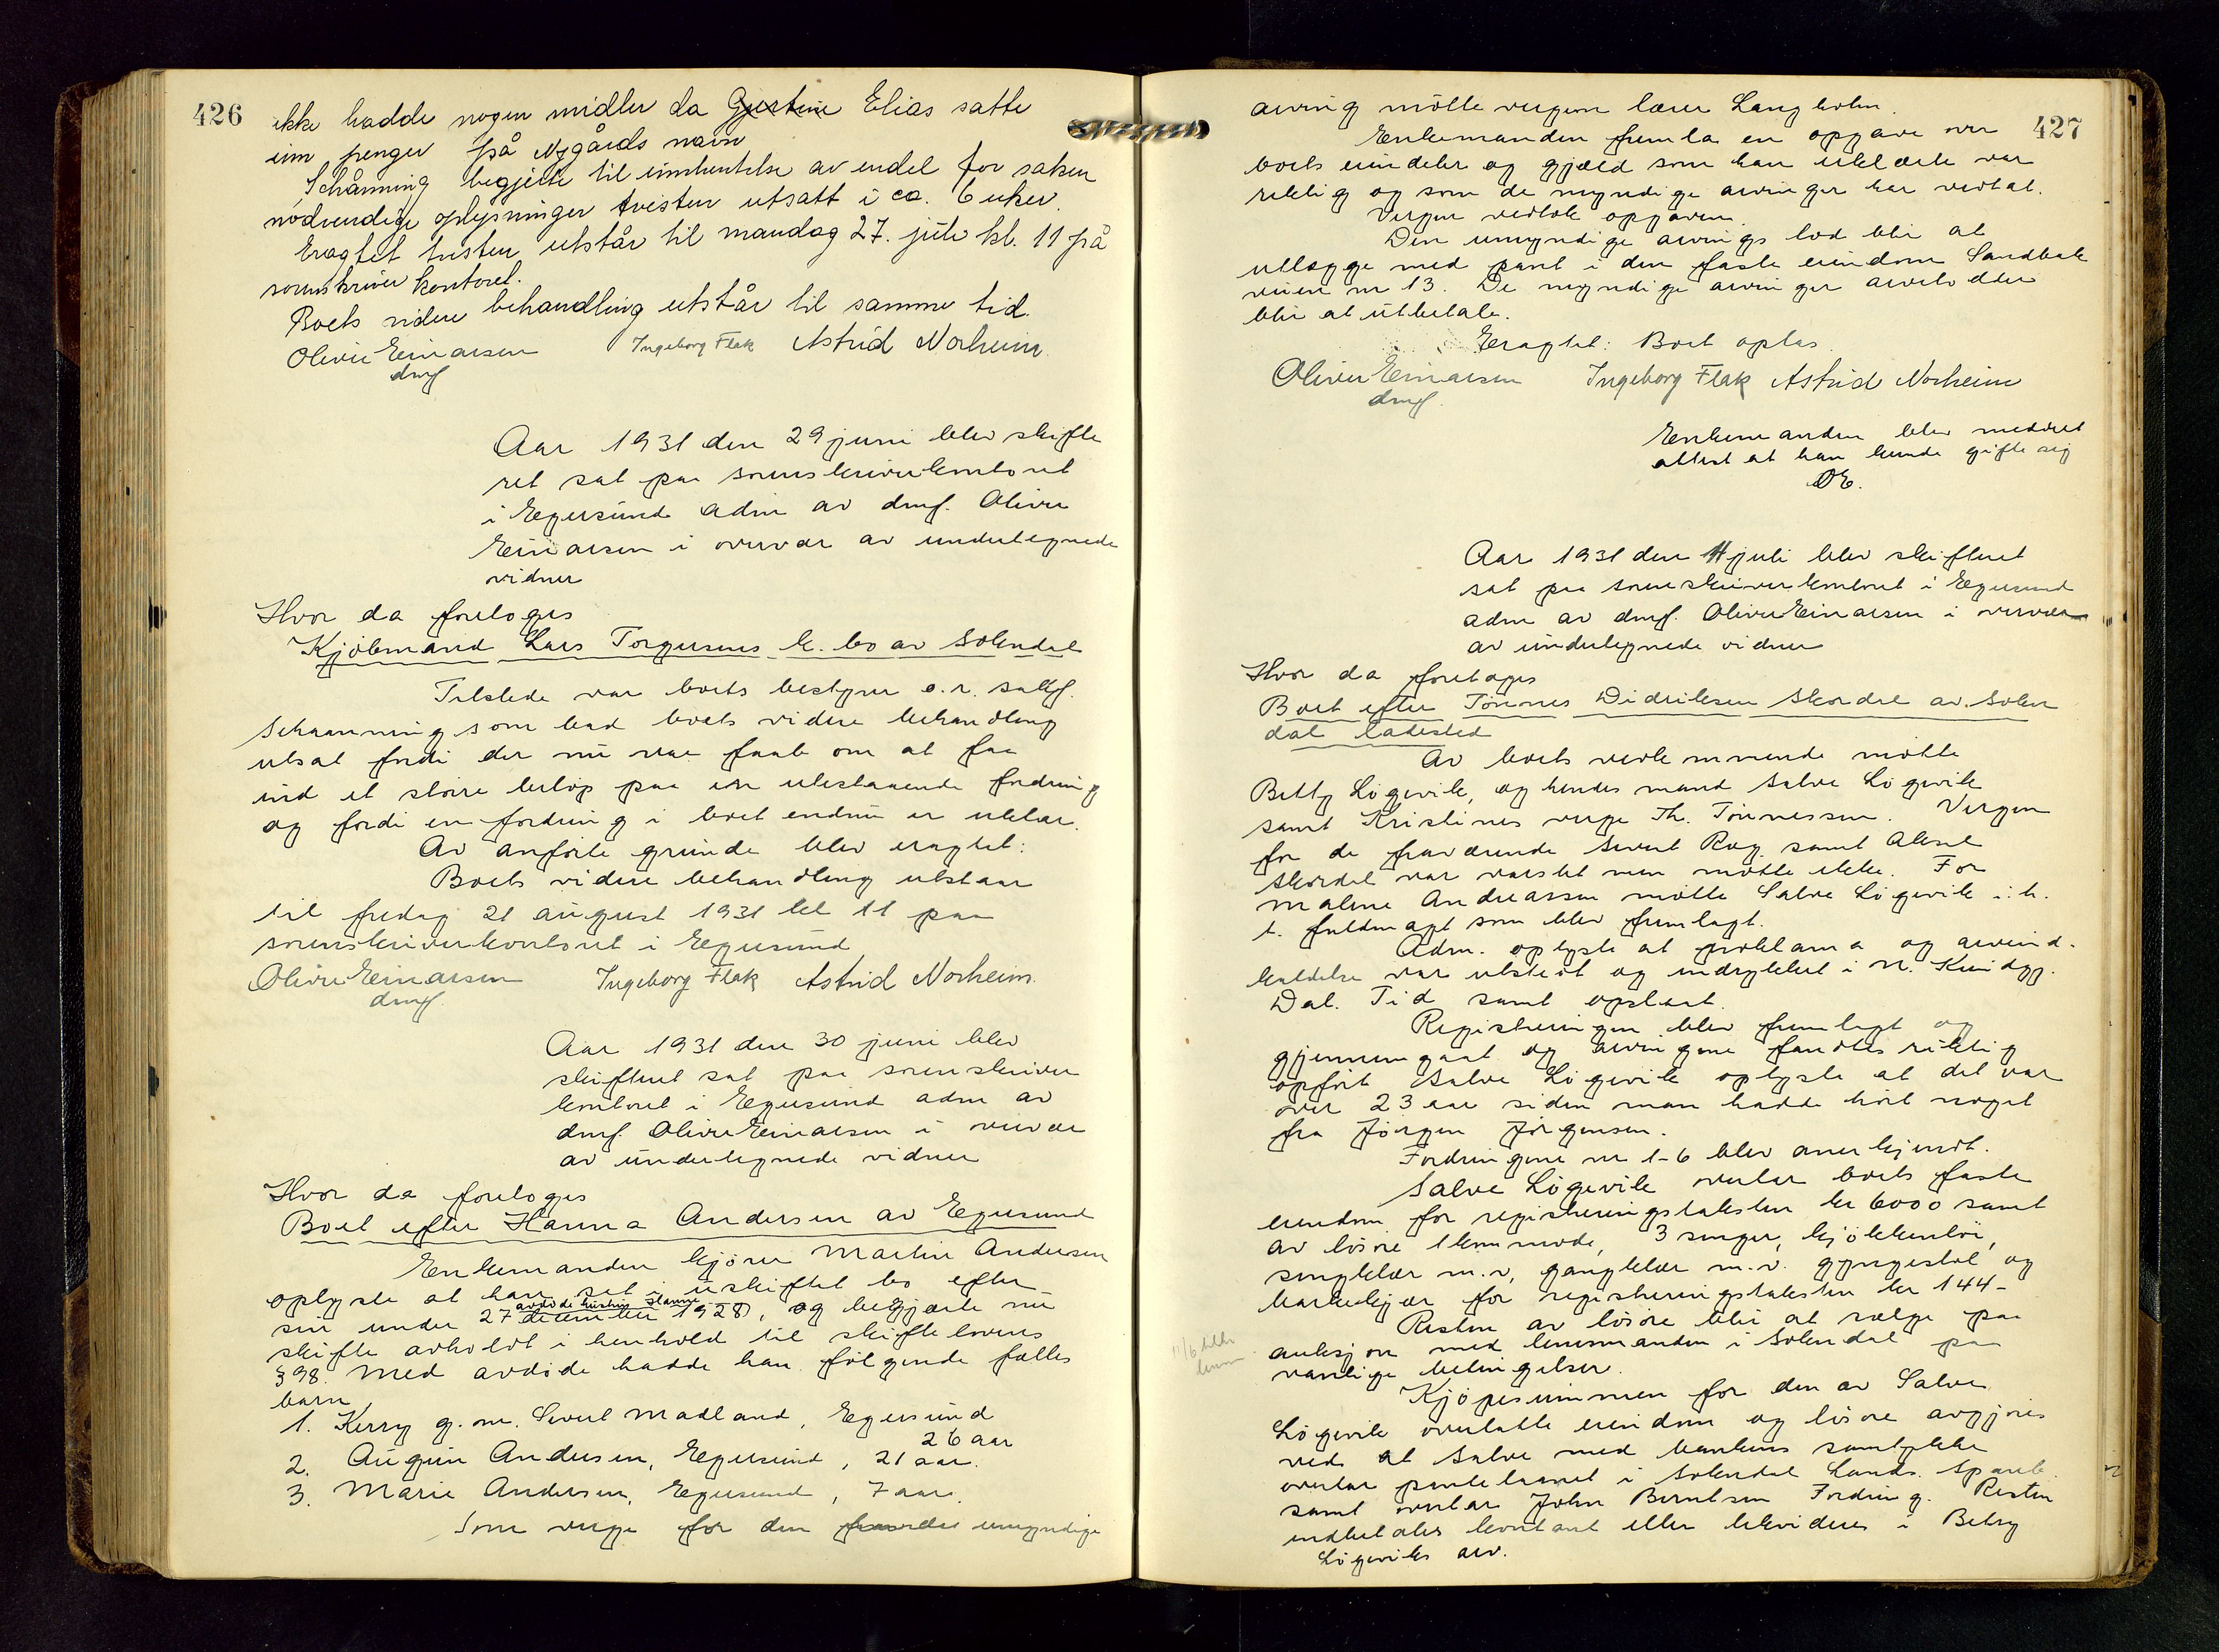 426
ikke hadde nogen midler da Gjestine Elias satte
inn penger på Nygårds navn
Schånning begjerte til innhentelse av endel for saken
nødvendige oplysninger tvisten utsatt i ca. 6 uker.
Eragtet tvisten utstår til mandag 27. juli kl. 11 på
sorenskriverkontoret.
Boets videre behandling utstår til samme tid.
Olivir Einarsen Ingeborg Flak Astrid Norheim
dmf
Aar 1931 den 29 juni blev skifte
ret sat paa sorenskriverkontoret
i Egersund adm av dmf. Olivir
Einarsen i overvær av undertegnede
vidner
Hvor da foretoges
Kjøbmand Lars Torgersens k. bo av Sokndal
Tilstede var boets bestyrer o.r. sakf.
Schaanning som bad boets videre behandling
utsat fordi der nu var haab om at faa
ind et større beløp paa en utestaaende fordring
og fordi en fordring i boet endnu er uklar.
Av anførte grunde blev eragtet:
Boets videre behandling utstaar
til fredag 21 august 1931 kl 11 paa
sorenskriverkontoret i Egersund
Olivir Einarsen Ingeborg Flak Astrid Norheim.
dmf.
Aar 1931 den 30 juni blev
skifteret sat paa sorenskriver
kontoret i Egersund adm av
dmf. Olivir Einarsen i overvær
av undertegnede vidner
Hvor da foretoges
Boet efter Hanna Andersen av Egersund
Enkemanden kjører Martin Andersen
oplyste at han sat i uskiftet bo efter
avdøde hustru Hanna
sin under 27 december 1928, og begjærte nu
skifte avholdt i henhold til skiftelovens
§ 98. Med avdøde hadde han følgende fælles
barn
1. Kerry g. m. Sivert Madland, Egersund
26 aar
2. August Andersen, Egersund, 21 aar.
3. Marie Andersen, Egersund, 7 aar.
Som verge for den umyndige
427
arving møtte vergen lærer Langholm.
Enkemanden fremla en opgave over
boets eiendeler og gjæld som han erklærte var
riktig og som de myndige arvinger har vedtat.
Vergen vedtok opgaven.
Den umyndige arvings lod blir at
utlægge med pant i den faste eiendom Sandbak
veien nr 13. De myndige arvinger arvelodder
blir at utbetale.
Eragtet: Boet opløs
Olivir Einarsen Ingeborg Flak Astrid Norheim
dmf.
Enkemanden blev meddelt
attest at han kunde gifte sig
OE.
Aar 1931 den 4 juli blev skifteret
sat paa sorenskriverkontoret i Egersund
adm av dmf. Olivir Einarsen i overvær
av undertegnede vidner
Hvor da foretoges
Boet efter Tønnes Didriksen Skordal av Sokn
dal ladested
Av boets vedkommende møtte
Betty Løgevik, og hendes mand Salve Løgevik
samt Kristines verge Th. Tønnessen. Vergen
for de fraværende Sivert Røg samt Aksel
Skordal var varslet men møtte ikke. For
Maline Andreassen møtte Salve Løgevik i. h.
t. fuldmagt som blev fremlagt.
Adm. oplyste at proklama og arveind-
kaldelse var utstedt og indrykket i N. Kundgj.
Dal. Tid samt opslaat.
Registreringen blev fremlagt og
gjennemgaat og arvingene fandtes riktig
opført Salve Løgevik oplyste at det var
over 23 aar siden man hadde hørt noget
fra Jørgen Jørgensen.
Fordringene nr 1-6 blev anerkjendt.
Salve Løgevik overtar boets faste
eiendom for registreringstaksten kr 6000 samt
av løsøre 1 kommode, 3 senger, kjøkkentøi,
sengklær m.v, gangklær m.v. gyngestol og
for registreringstaksten kr 144-
Resten av løsøre blir at sælge paa
auksjon med lensmanden i Sokndal paa
vanlige betingelser.
Kjøpesummen for den av Salve
Løgevik overtatte eiendom og løsøre avgjøres
ved at Salve med bankens samtykke
overtar pantelaanet i Sokndal Lands. Spareb.
samt overtar John Berntsen Fordring. Resten
indbetales kontant eller likvideres i Betty
Løgeviks arv.